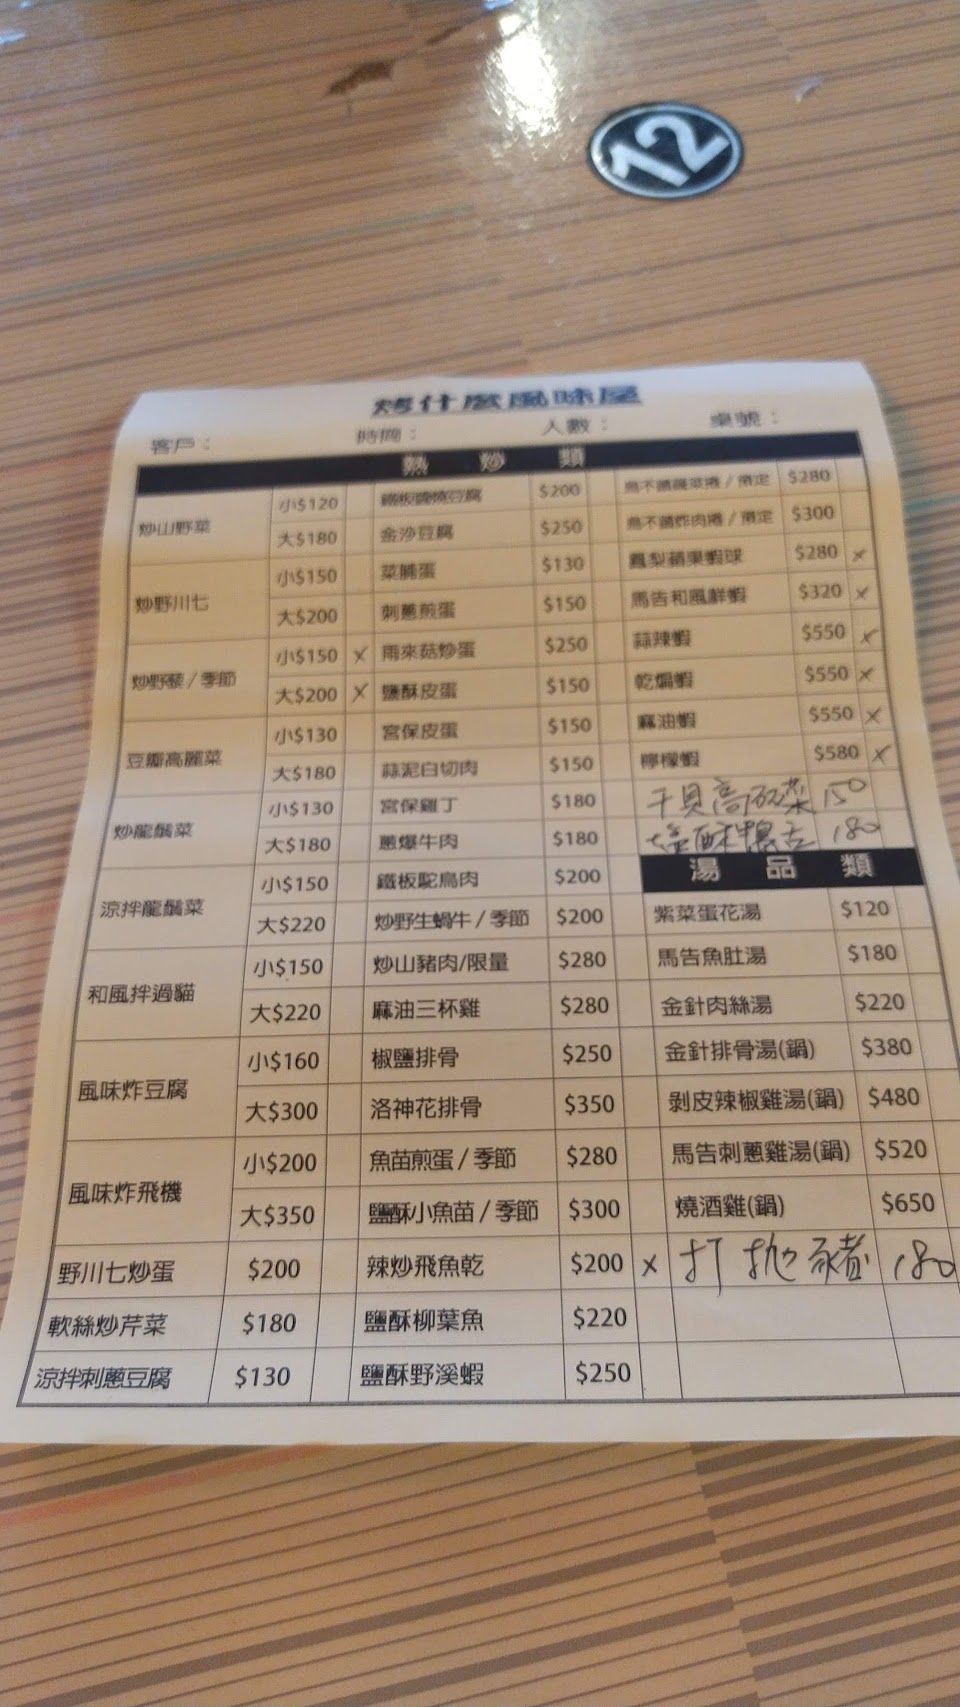 12
烤什麼風味屋
客戶： 時間： 人數： 桌號：
熱 炒 類
炒山野菜 小$120
大$180
炒野川七 小$150
大$200
炒野藜/季節 小$150 X
大$200 X
豆瓣高麗菜 小$130
大$180
炒龍鬚菜 小$130
大$180
涼拌龍鬚菜 小$150
大$220
和風拌過貓 小$150
大$220
風味炸豆腐 小$160
大$300
風味炸飛機 小$200
大$350
野川七炒蛋 $200
軟絲炒芹菜 $180
涼拌刺蔥豆腐 $130
鐵板醬燒豆腐 $200
金沙豆腐 $250
菜脯蛋 $130
刺蔥煎蛋 $150
雨來菇炒蛋 $250
鹽酥皮蛋 $150
宮保皮蛋 $150
蒜泥白切肉 $150
宮保雞丁 $180
蔥爆牛肉 $180
鐵板鴕鳥肉 $200
炒野生蝸牛/季節 $200
炒山豬肉/限量 $280
麻油三杯雞 $280
椒鹽排骨 $250
洛神花排骨 $350
魚苗煎蛋/季節 $280
鹽酥小魚苗/季節 $300
辣炒飛魚乾 $200 X
鹽酥柳葉魚 $220
鹽酥野溪蝦 $250
鳥不踏蔬菜捲/預定 $280
鳥不踏炸肉捲/預定 $300
鳳梨蘋果蝦球 $280 X
馬告和風鮮蝦 $320 X
蒜辣蝦 $550 X
乾煸蝦 $550 X
麻油蝦 $550 X
檸檬蝦 $580 X
干貝高麗菜 150
鹽酥鴨舌 180
湯 品 類
紫菜蛋花湯 $120
馬告魚肚湯 $180
金針肉絲湯 $220
金針排骨湯(鍋) $380
剝皮辣椒雞湯(鍋) $480
馬告刺蔥雞湯(鍋) $520
燒酒雞(鍋) $650
打拋豬 180